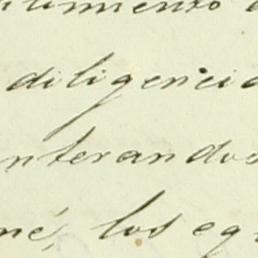 plimiento
diligencia
nterandos
né, los eq